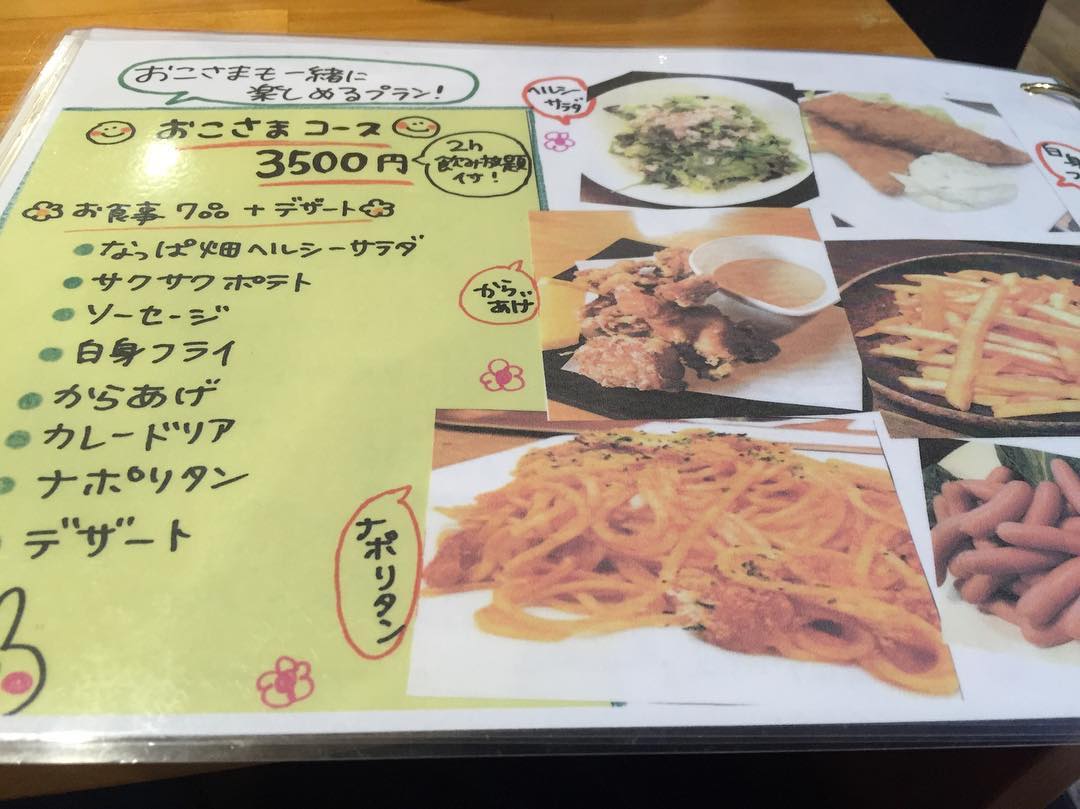 おこさまも一緒に
楽しめるプラン!
おこさまコース
3500円
2h
飲み放題
付!
お食事7品+デザート
なっぱ畑ヘルシーサラダ
サクサクポテト
ソーセージ
白身フライ
からあげ
カレードリア
ナポリタン
デザート
ヘルシー
サラダ
白身
フ
から
あげ
ナポリタン